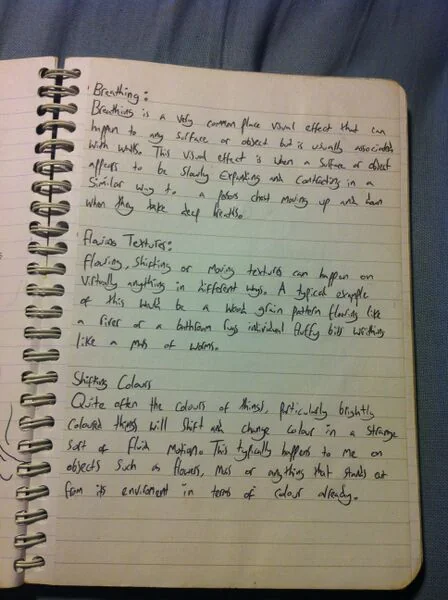 Breathing:
Breathing is a very common place visual effect that can
happen to any surface or object but is usually associated
with walls. This visual effect is when a surface or object
appears to be slowly Expanding and contracting in a
similar way to a persons chest moving up and down
when they take deep breaths.
Flowing Textures:
Flowing, shifting or moving textures can happen on
virtually anything in different ways. A typical example
of this would be a wood grain pattern flowing like
a river or a bathroom rugs individual fluffy bits writhing
like a mass of worms.
Shifting Colours
Quite often the colours of things, particularly brightly
coloured things will shift and change colour in a strange
sort of fluid motion. This typically happens to me on
objects such as flowers, moss or anything that stands out
from its enviroment in terms of colour already.